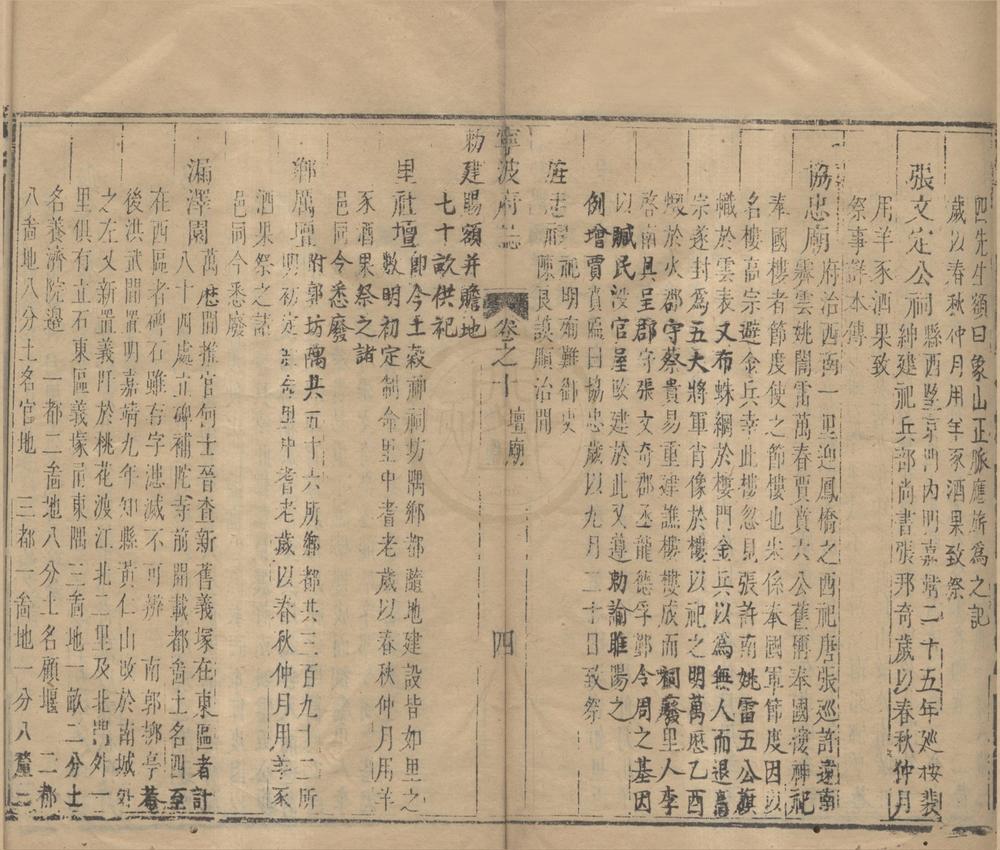 四先生額曰象山正脈應 為之記
歲以春秋仲月用羊豕酒果致祭
張文定公祠縣西 門內明嘉 二十五年廵按裴
紳建祀兵部尚書張邦奇歲以春秋仲月
用羊豕酒果致
祭事詳本傳
協忠廟府治西南一里迎鳳橋之西祀唐張廵許遠南
霽雲姚誾雷萬春賈賁六公舊 奉國樓神祀
奉國樓者節度使之節樓也宋係奉國軍節度因以
名樓高宗避金兵幸此樓忽見張許南姚雷五公旗
幟於雲表又布蛛網於樓門金兵以為無人而退高
宗遂封為五大將軍肖像於樓以祀之明萬曆乙酉
燬於火郡守蔡貴易重建譙樓樓成而祠廢里人李
啓南具呈郡守張文奇郡丞龍德孚鄞令周之基因
以贓民沒官屋改建於此又遵勅諭睢陽之
例增賈賁 曰協忠歲以九月二十日致祭
祀明殉難御史
陳良謨順治間
勅建賜額并贍地
七十畝供祀
寧波府誌 卷之十 壇廟 四
里社壇即今土穀神祠坊隅鄉都隨地建設皆如里之
數明初定制命里中耆老歲以春秋仲月用羊
豕酒果祭之諸
邑同今悉廢
鄉厲壇附郭坊隅共五十六所鄉都共三百九十二所
明初定 里中耆老歲以春秋仲月用羊豕
酒果祭之諸
邑同今悉廢
漏澤園萬曆間推官何士晉查新舊義塚在東區者計
八十四處立碑補陀寺前開載都啚土名西至
在西區者碑石雖存字漶滅不可辨 南郭 亭巷
後洪武間置明嘉靖九年知縣黃仁山改於南城外
之左又新置義阡於桃花渡江北二里及北 外一
里俱有立石東區義塚 東隅 三啚地一畝二分土
名養濟院邊 一都二啚地八分土名顧堰 二都
八啚地八分土名官地 三都一啚地一分八釐二